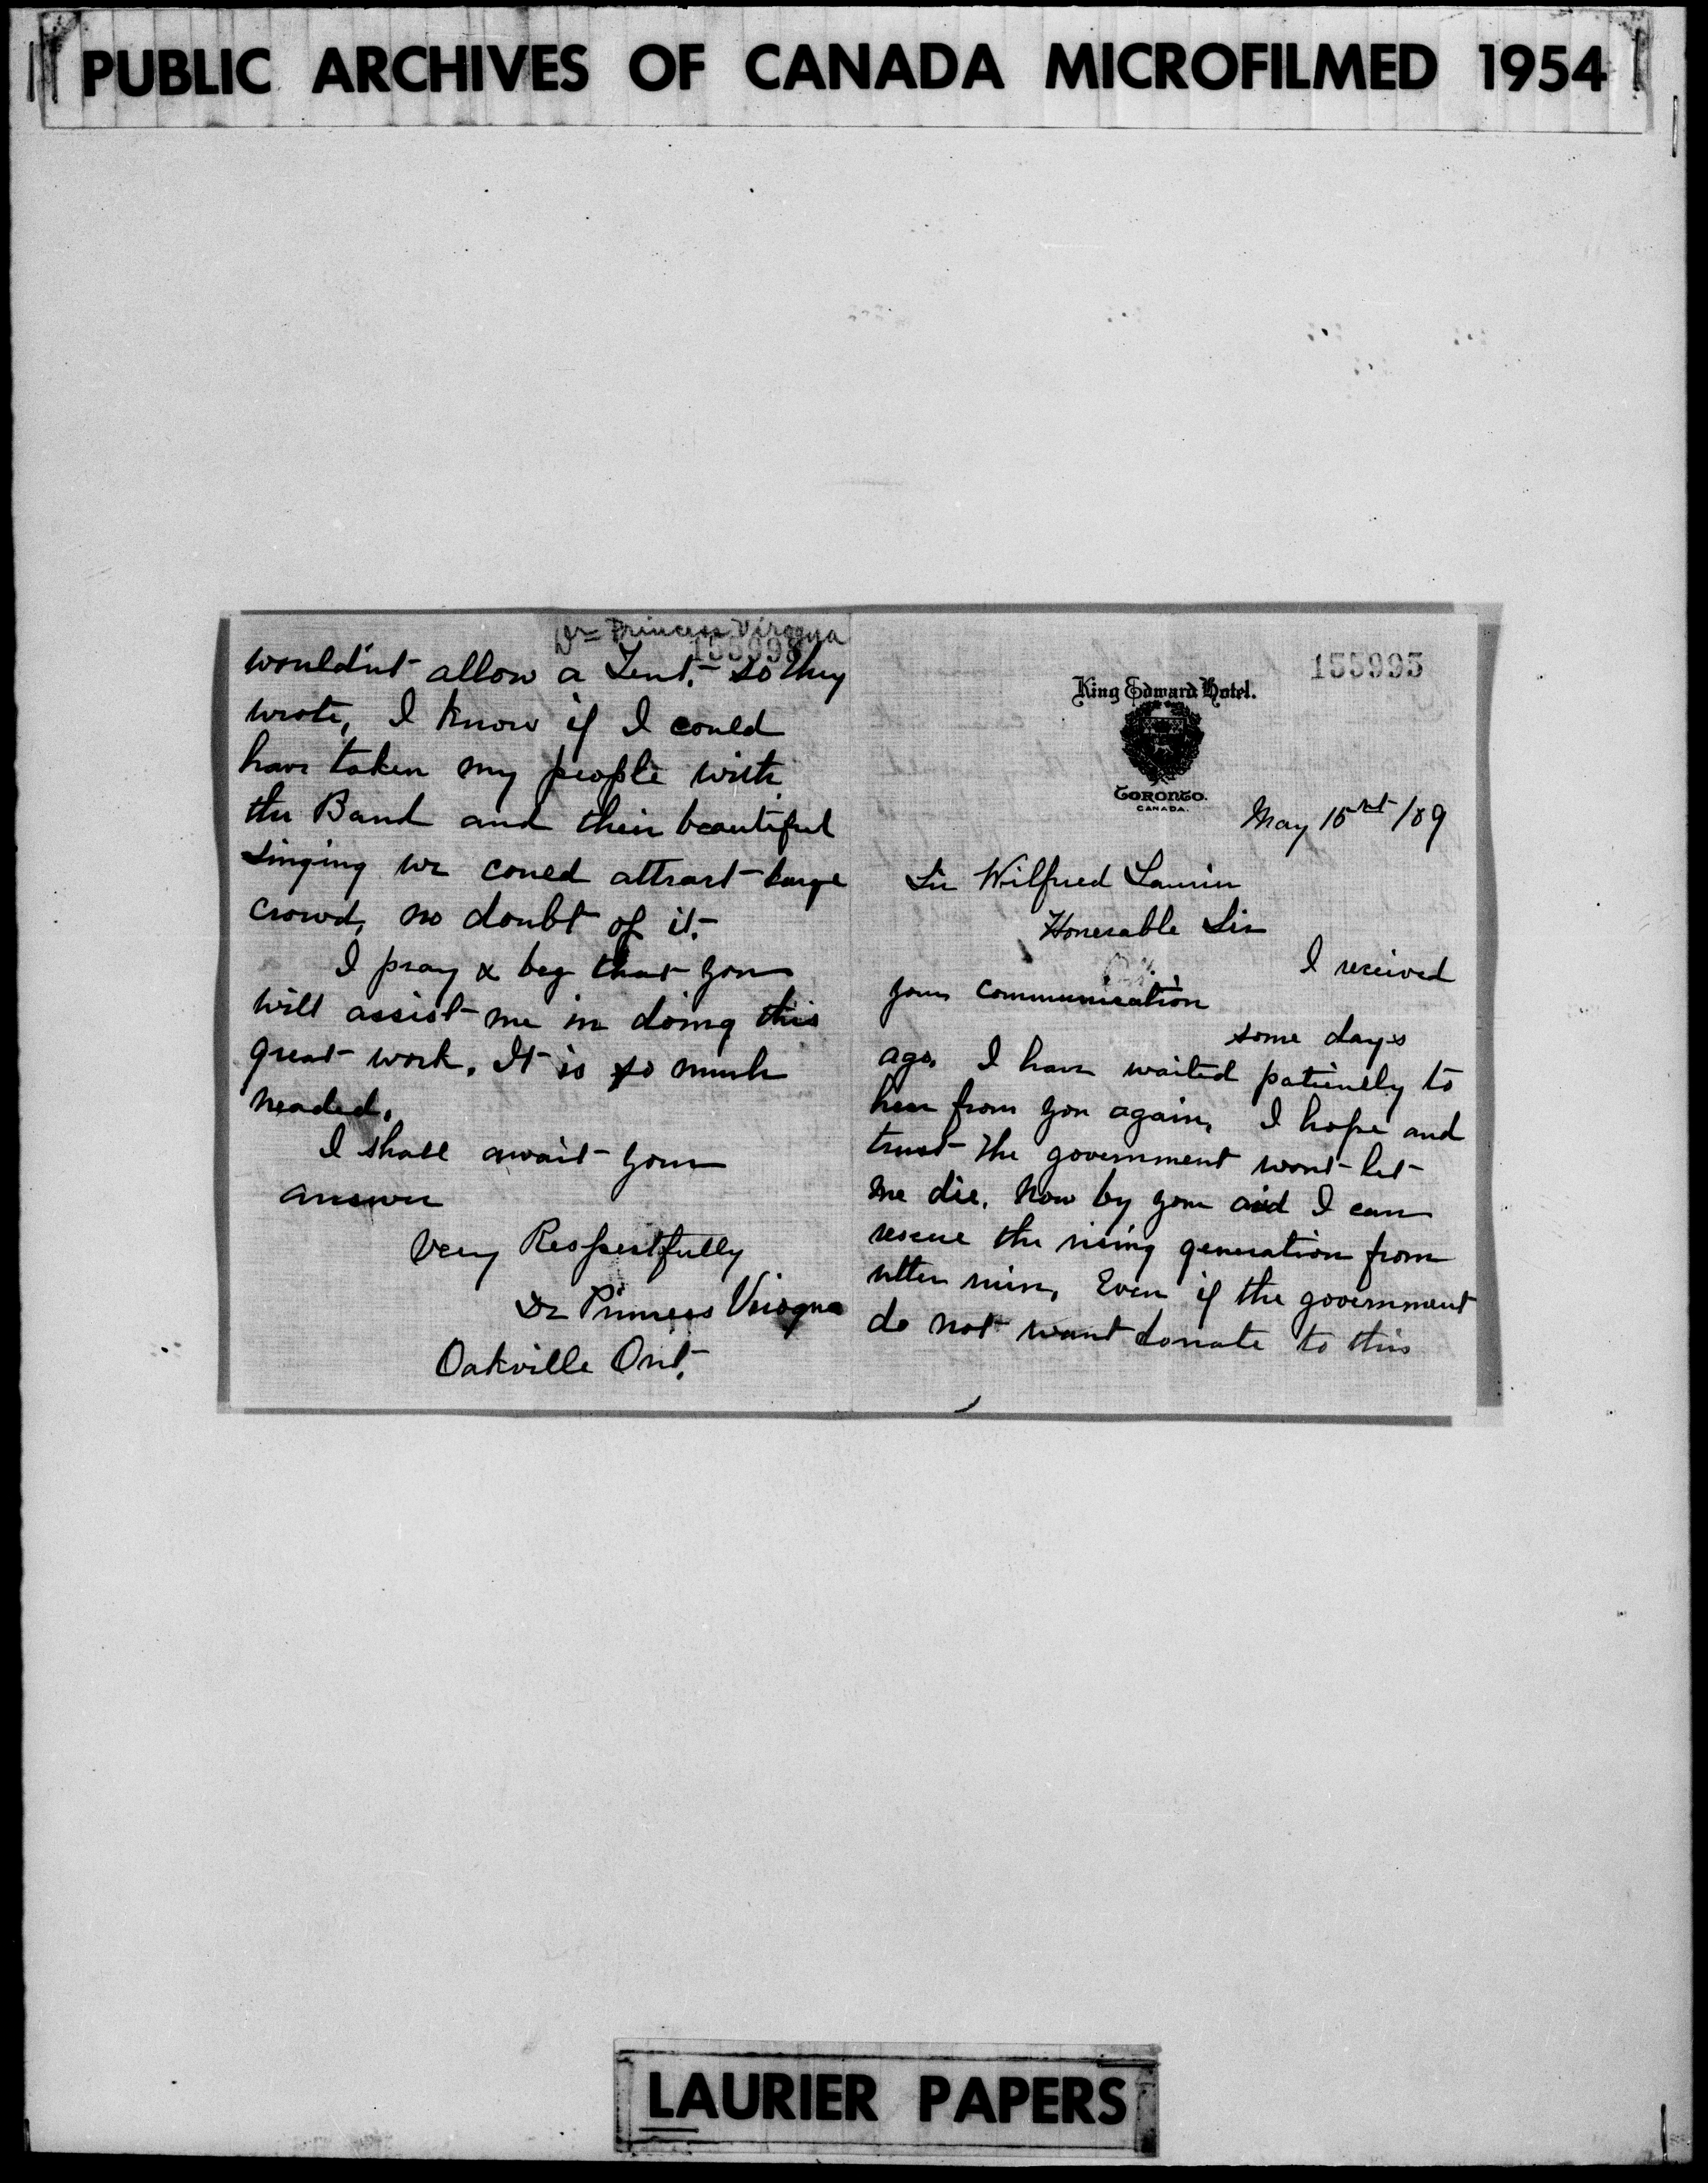 PUBLIC ARCHIVES OF CANADA MICROFILMED 1954
Dr= Princess Viroqua
155998
wouldn't allow a Tent. So they
wrote, I know if I could
have taken my people with
the Band and their beautiful
singing we coued attract large
crowd, no doubt of it.
I pray & beg that you
will assist me in doing this
great work. It is so much
neaded.
I shall await your
answer
Very Respectfully
Dr Princess Viroqua
Oakville Ont.
155995
King Edward Hotel.
TORONTO.
CANADA.
May 15 /09
Sir Wilfred Laurier
Honerable Sir
I received
your communication
some days
ago. I have waited patiently to
hear from you again, I hope and
trust the government wont let
me die. Now by your aid I can
rescue the rising generation from
utter ruin, Even if the government
do not want donate to this
LAURIER PAPERS